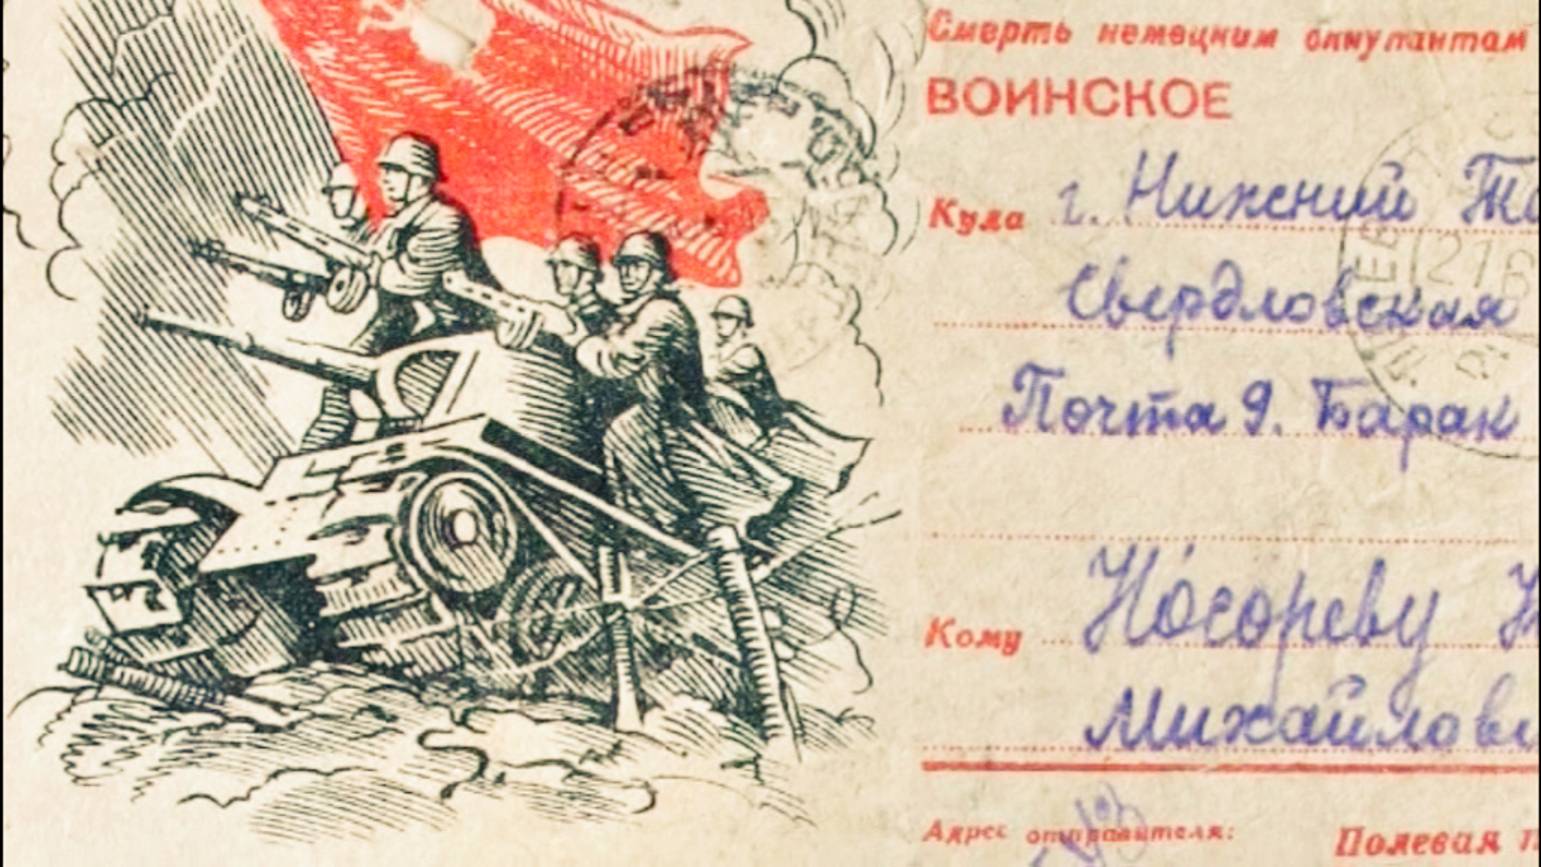 Смерть немецким оккупантам
ВОИНСКОЕ
Куда г. Нижний
Свердловская
Почта 9. Барак
Кому Носореву
Адрес отправителя: Полевая